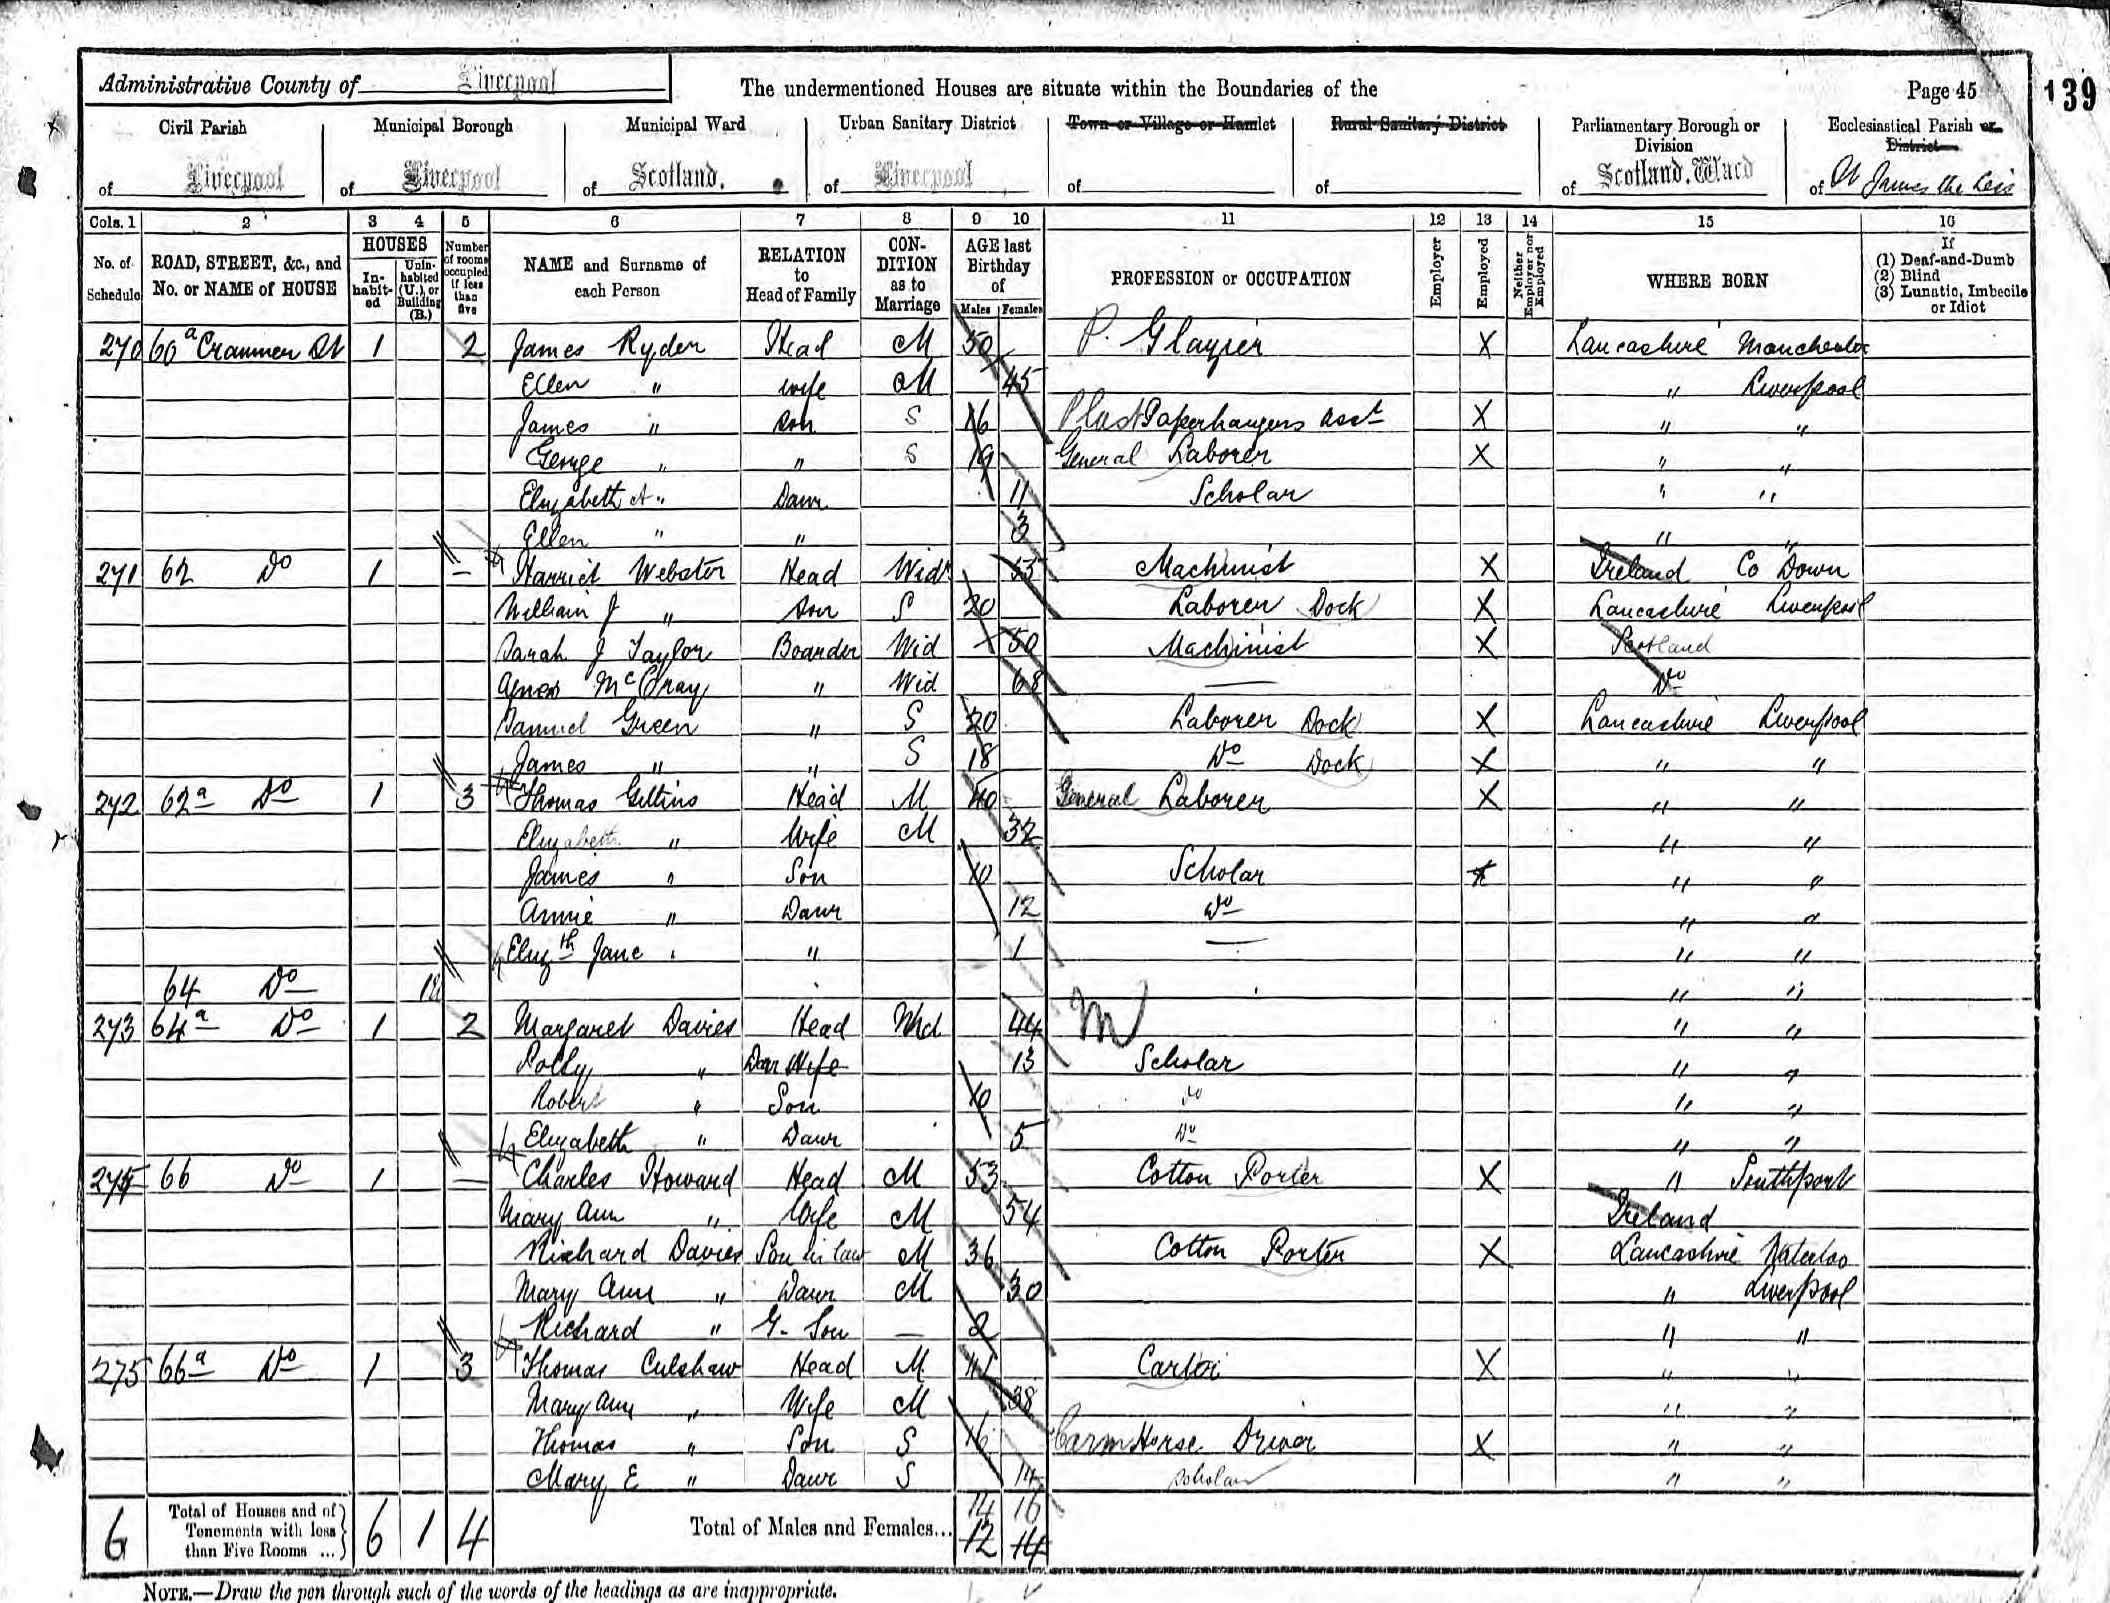 Administrative County of Liverpool
The undermentioned Houses are situate within the Boundaries of the
Page 45
139
Civil Parish of Liverpool
Municipal Borough of Liverpool
Municipal Ward of Scotland.
Urban Sanitary District of Liverpool
Town or Village or Hamlet of
Rural Sanitary District of
Parliamentary Borough or Division of Scotland. Ward
Ecclesiastical Parish or District of St James the Less
Cols. 1 2 3 4 5 6 7 8 9 10 11 12 13 14 15 16
No. of Schedule
ROAD, STREET, &c., and No. or NAME of HOUSE
HOUSES
In-habit-ed
Unin-habited (U.), or Building (B.)
Number of rooms occupied if less than five
NAME and Surname of each Person
RELATION to Head of Family
CON-DITION as to Marriage
AGE last Birthday of
Males Females
PROFESSION or OCCUPATION
Employer
Employed
Neither Employer nor Employed
WHERE BORN
If
(1) Deaf-and-Dumb
(2) Blind
(3) Lunatic, Imbecile or Idiot
270 60a Cranmer St 1 2 James Ryder Head M 50 P. Glazier X Lancashire Manchester
Ellen " wife M 45 " Liverpool
James " son S 16 Paperhangers Asst X " "
George " " S 19 General Laborer X " "
Elizabeth A " Daur 11 Scholar " "
Ellen " " 3 " "
271 62 Do 1 – Harriet Webster Head Wid 53 Machinist X Ireland Co Down
William J " son S 20 Laborer Dock X Lancashire Liverpool
Sarah J Taylor Boarder Wid 50 Machinist X Scotland
Agnes " Wid 68 — Do
Samuel Green " S 20 Laborer Dock X Lancashire Liverpool
James " " S 18 Do Dock X " "
272 62a Do 1 3 Thomas Head M 40 General Laborer X " "
Elizabeth " Wife M 32 " "
James " Son 10 Scholar X " "
Annie " Daur 12 Do " "
Elizth Jane " " 1 — " "
64 Do 1U " "
273 64a Do 1 2 Margaret Davies Head Wid 44 " "
Polly " Daur Wife 13 Scholar " "
Robert " Son 10 Do " "
Elizabeth " Daur 5 Do " "
274 66 Do 1 — Charles Howard Head M 53 Cotton Porter X " Southport
Mary Ann " Wife M 54 Ireland
Richard Davies Son in law M 36 Cotton Porter X Lancashire Waterloo
Mary Ann " Daur M 30 " Liverpool
Richard " G. Son — 2 " "
275 66a Do 1 3 Thomas Culshaw Head M 41 Carter X " "
Mary Ann " Wife M 38 " "
Thomas " Son S 16 Horse Driver X " "
Mary E " Daur S 14 Scholar " "
6 Total of Houses and of Tenements with less than Five Rooms ... 6 1 4 Total of Males and Females... 14 16
12 14
NOTE.—Draw the pen through such of the words of the headings as are inappropriate.